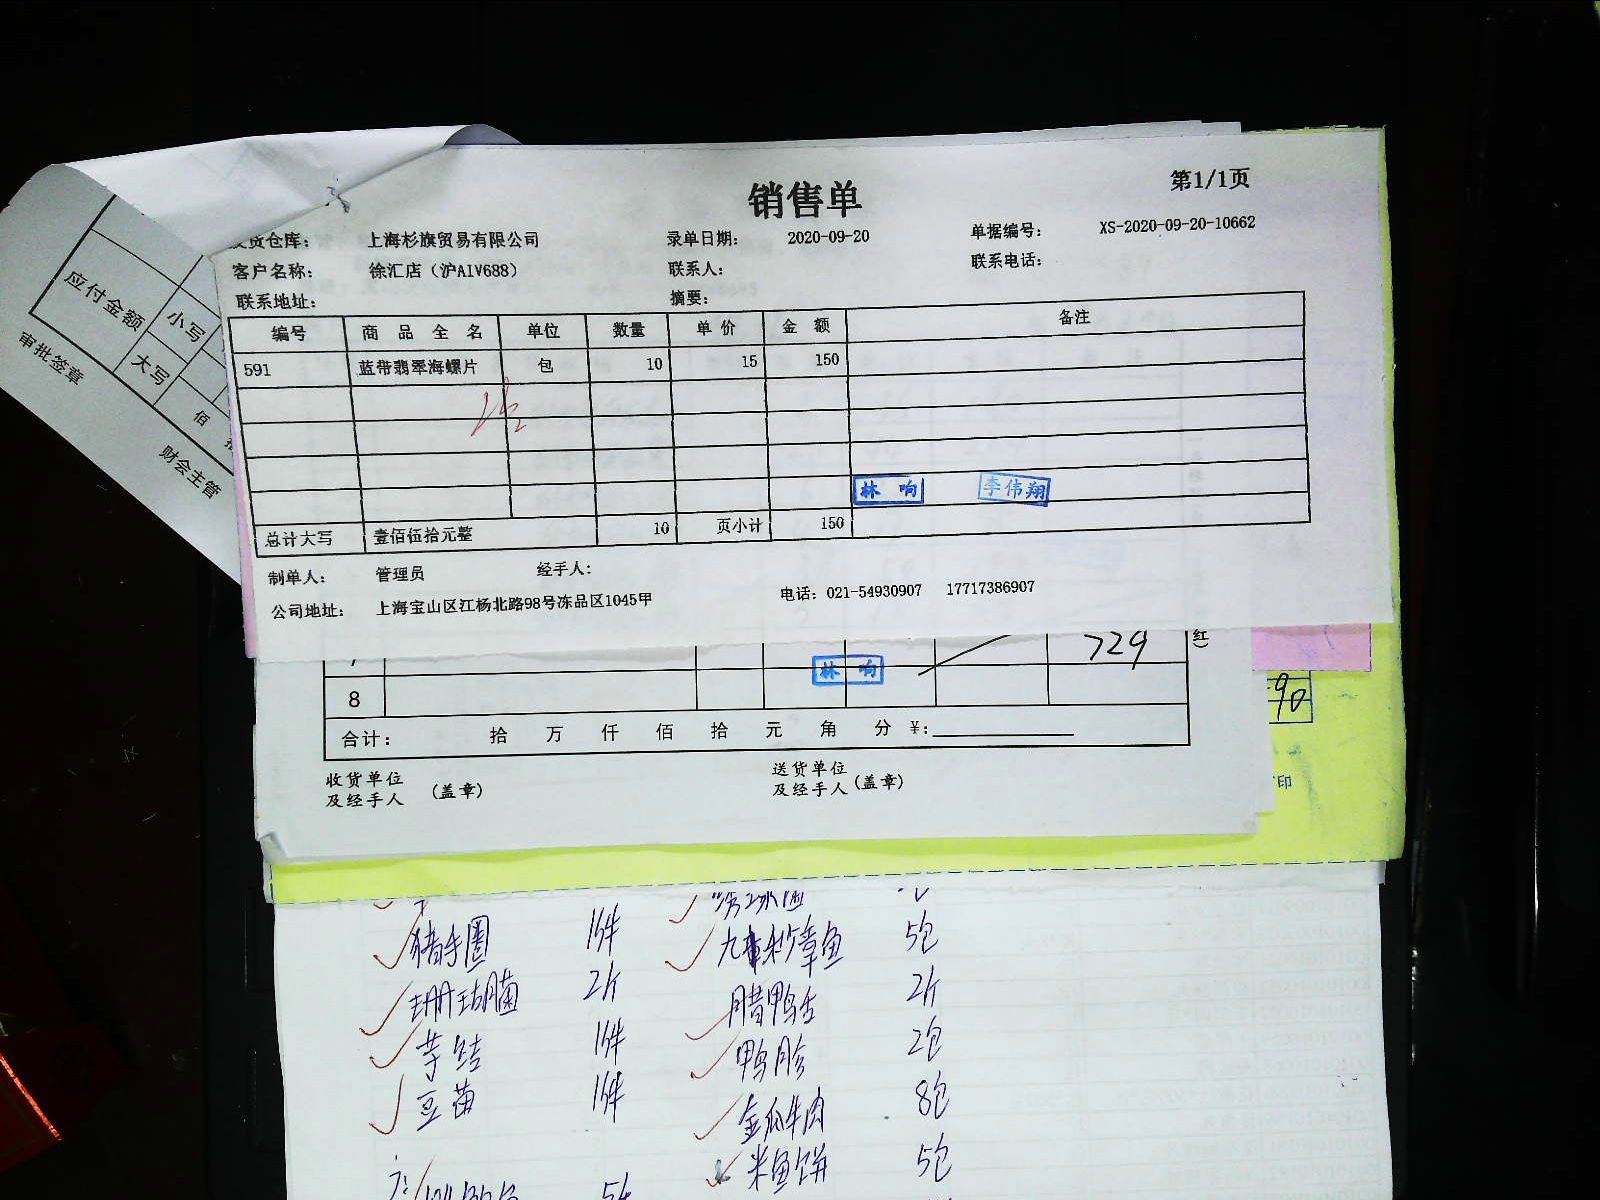 销售单
第1/1页
货仓库： 上海杉旗贸易有限公司 录单日期： 2020-09-20 单据编号： XS-2020-09-20-10662
客户名称： 徐汇店（沪A1V688） 联系人： 联系电话：
联系地址： 摘要：
编号 商品全名 单位 数量 单价 金额 备注
591 蓝带翡翠海螺片 包 10 15 150
林响 李伟翔
总计大写 壹佰伍拾元整 10 页小计 150
制单人： 管理员 经手人：
公司地址： 上海宝山区江杨北路98号冻品区1045甲 电话：021-54930907 17717386907
应付金额 小写
大写
佰
审批签章
财会主管
7 729 红）
林响
8
合计： 拾 万 仟 佰 拾 元 角 分 ¥：
收货单位及经手人 （盖章） 送货单位及经手人（盖章）
90
印
猪手圈 1件 5包
珊瑚菌 2斤 腊鸭舌 2斤
芋结 1件 鸭胗 2包
豆苗 1件 金瓜牛肉 8包
米鱼饼 5包